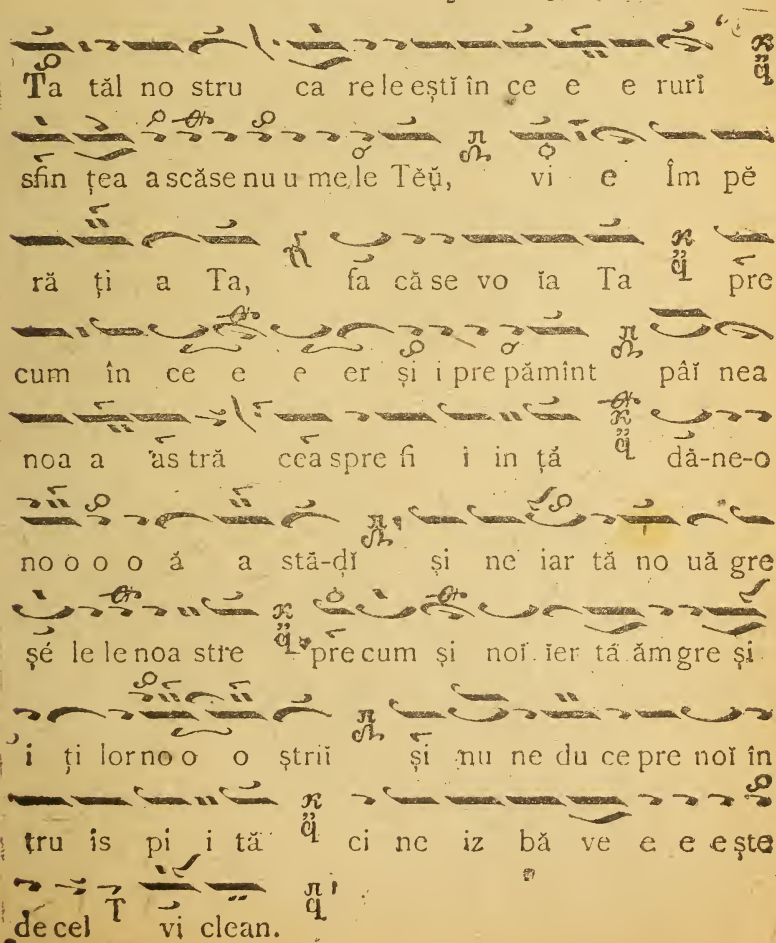 Ta tăl no stru ca re le eștĭ în ce e e rurĭ
sfin țea a scă se nu u me le Tĕŭ, vi e Îm pĕ
ră ți a Ta, fa că se vo ĭa Ta pre
cum în ce e e er și i pre pămînt pâĭ nea
noa a as tră cea spre fi i in ță dă-ne-o
no o o o ă a stă-dĭ și ne iar tă no uă gre
șé le le noa stre pre cum și noĭ ier tă ăm gre și
i ți lor no o o ștrii și nu ne du ce pre noĭ în
tru is pi i tă ci ne iz bă ve e e ește
de cel vi clean.